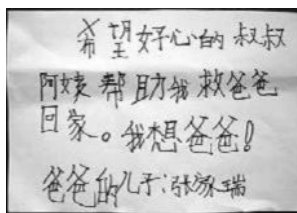 希望好心的叔叔
阿姨帮助我救爸爸
回家。我想爸爸!
爸爸的儿子:张瑞